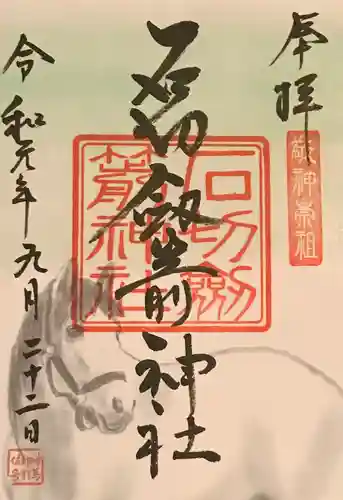 奉拝
敬神崇祖
石切劔箭神社
石切劔箭神社
令和元年九月二十二日